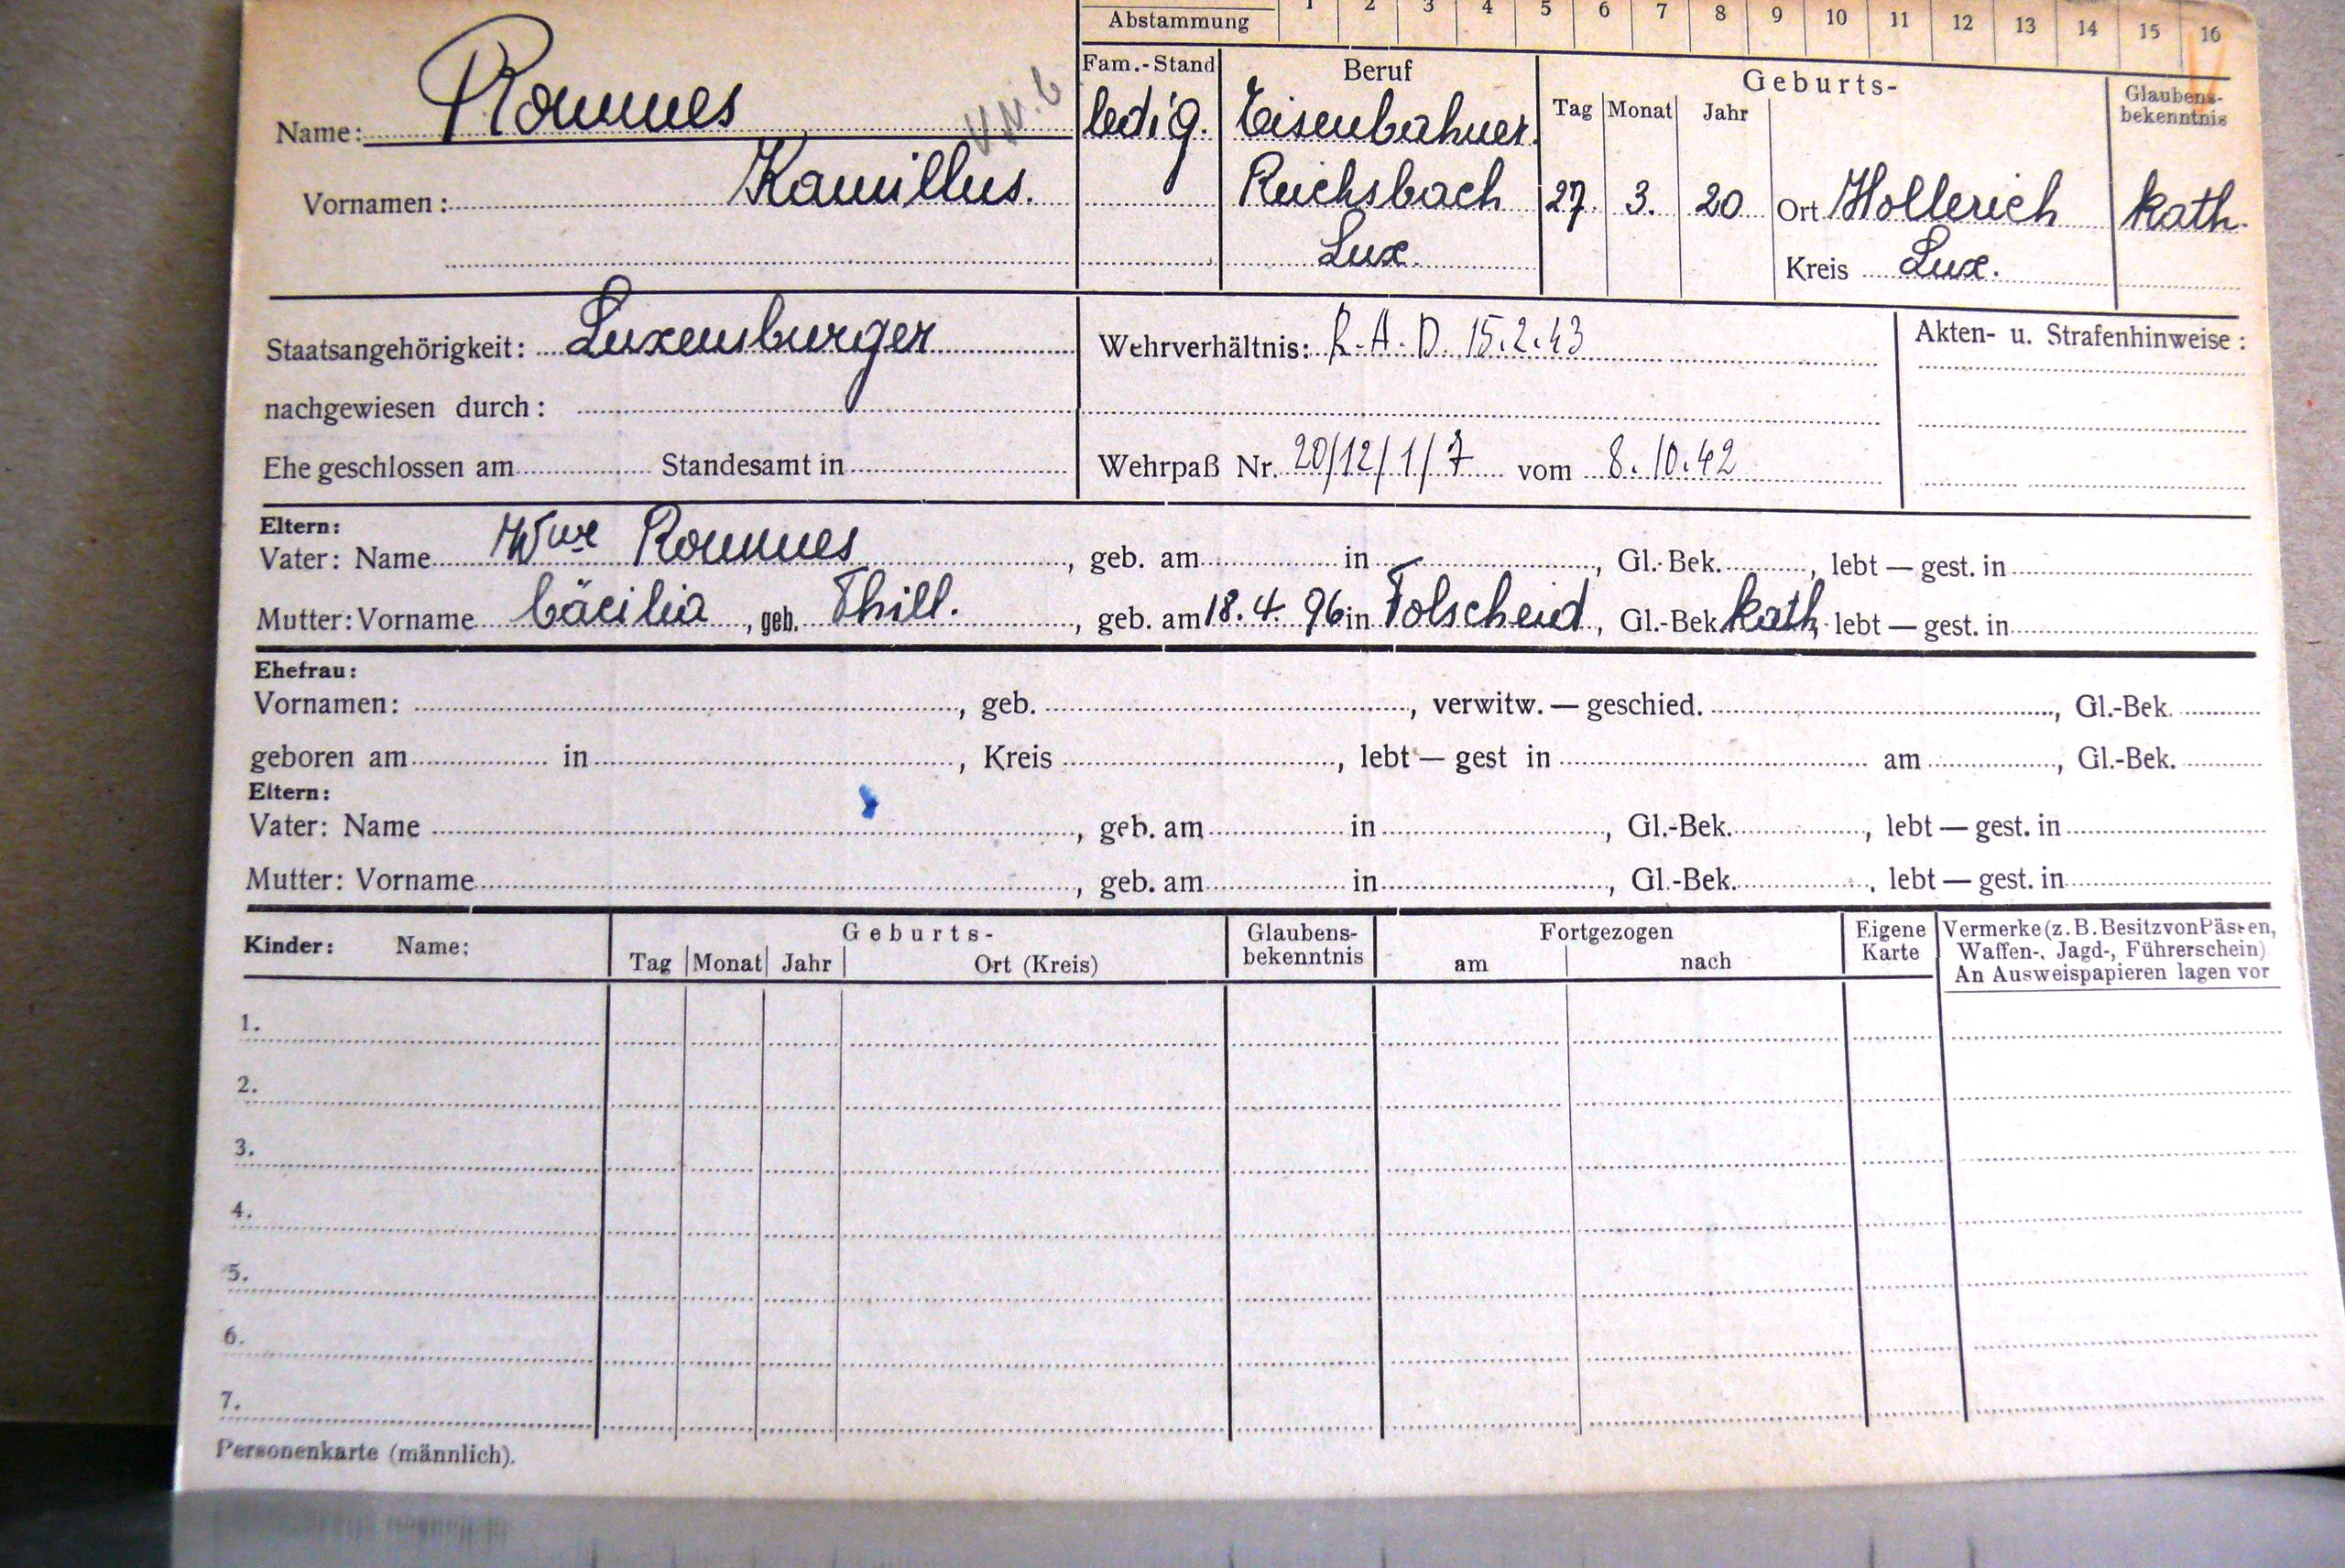 Abstammung 1 2 3 4 5 6 7 8 9 10 11 12 13 14 15 16
Name: Rommes
Vornamen: Kamillus.
Fam.-Stand
ledig.
Beruf
Eisenbahner
Reichsbach
Lux.
Geburts-
Tag Monat Jahr
27. 3. 20 Ort Hollerich
Kreis Lux.
Glaubens-
bekenntnis
kath.
Staatsangehörigkeit: Luxemburger
nachgewiesen durch:
Ehe geschlossen am Standesamt in
Wehrverhältnis: R.A.D. 15.2.43
Wehrpaß Nr. 20/12/1/7 vom 8.10.42
Akten- u. Strafenhinweise:
Eltern:
Vater: Name Wwe Rommes, geb. am in, Gl.-Bek., lebt — gest. in
Mutter: Vorname Cäcilia, geb. Thill., geb. am 18.4.96 in Folscheid, Gl.-Bek. kath, lebt — gest. in
Ehefrau:
Vornamen: , geb. , verwitw. — geschied. , Gl.-Bek.
geboren am in , Kreis , lebt — gest in am , Gl.-Bek.
Eltern:
Vater: Name , geb. am in , Gl.-Bek. , lebt — gest. in
Mutter: Vorname , geb. am in , Gl.-Bek. , lebt — gest. in
Kinder: Name:
Geburts-
Tag Monat Jahr Ort (Kreis)
Glaubens-
bekenntnis
Fortgezogen
am nach
Eigene
Karte
Vermerke (z. B. Besitz von Pässen,
Waffen-, Jagd-, Führerschein)
An Ausweispapieren lagen vor
1.
2.
3.
4.
5.
6.
7.
Personenkarte (männlich).